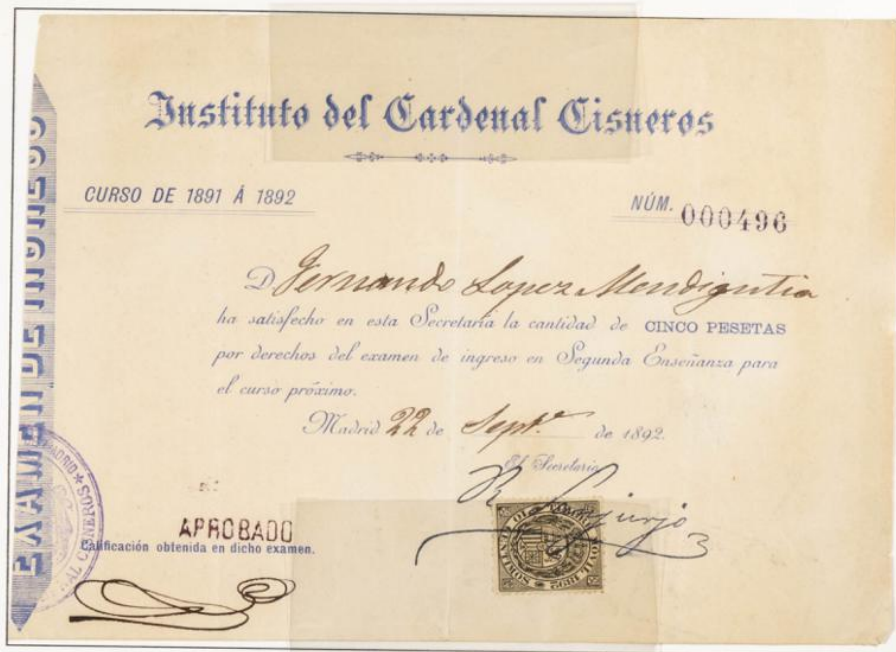 Instituto del Cardenal Cisneros
CURSO DE 1891 Á 1892
NÚM. 000496
D. Fernando Lopez Mendigutia
ha satisfecho en esta Secretaría la cantidad de CINCO PESETAS
por derechos del examen de ingreso en Segunda Enseñanza para
el curso próximo.
Madrid 22 de Sept.e de 1892.
El Secretario
APROBADO
Calificación obtenida en dicho examen.
EXAMEN DE INGRESO
MADRID
CISNEROS
MOVIL 1892